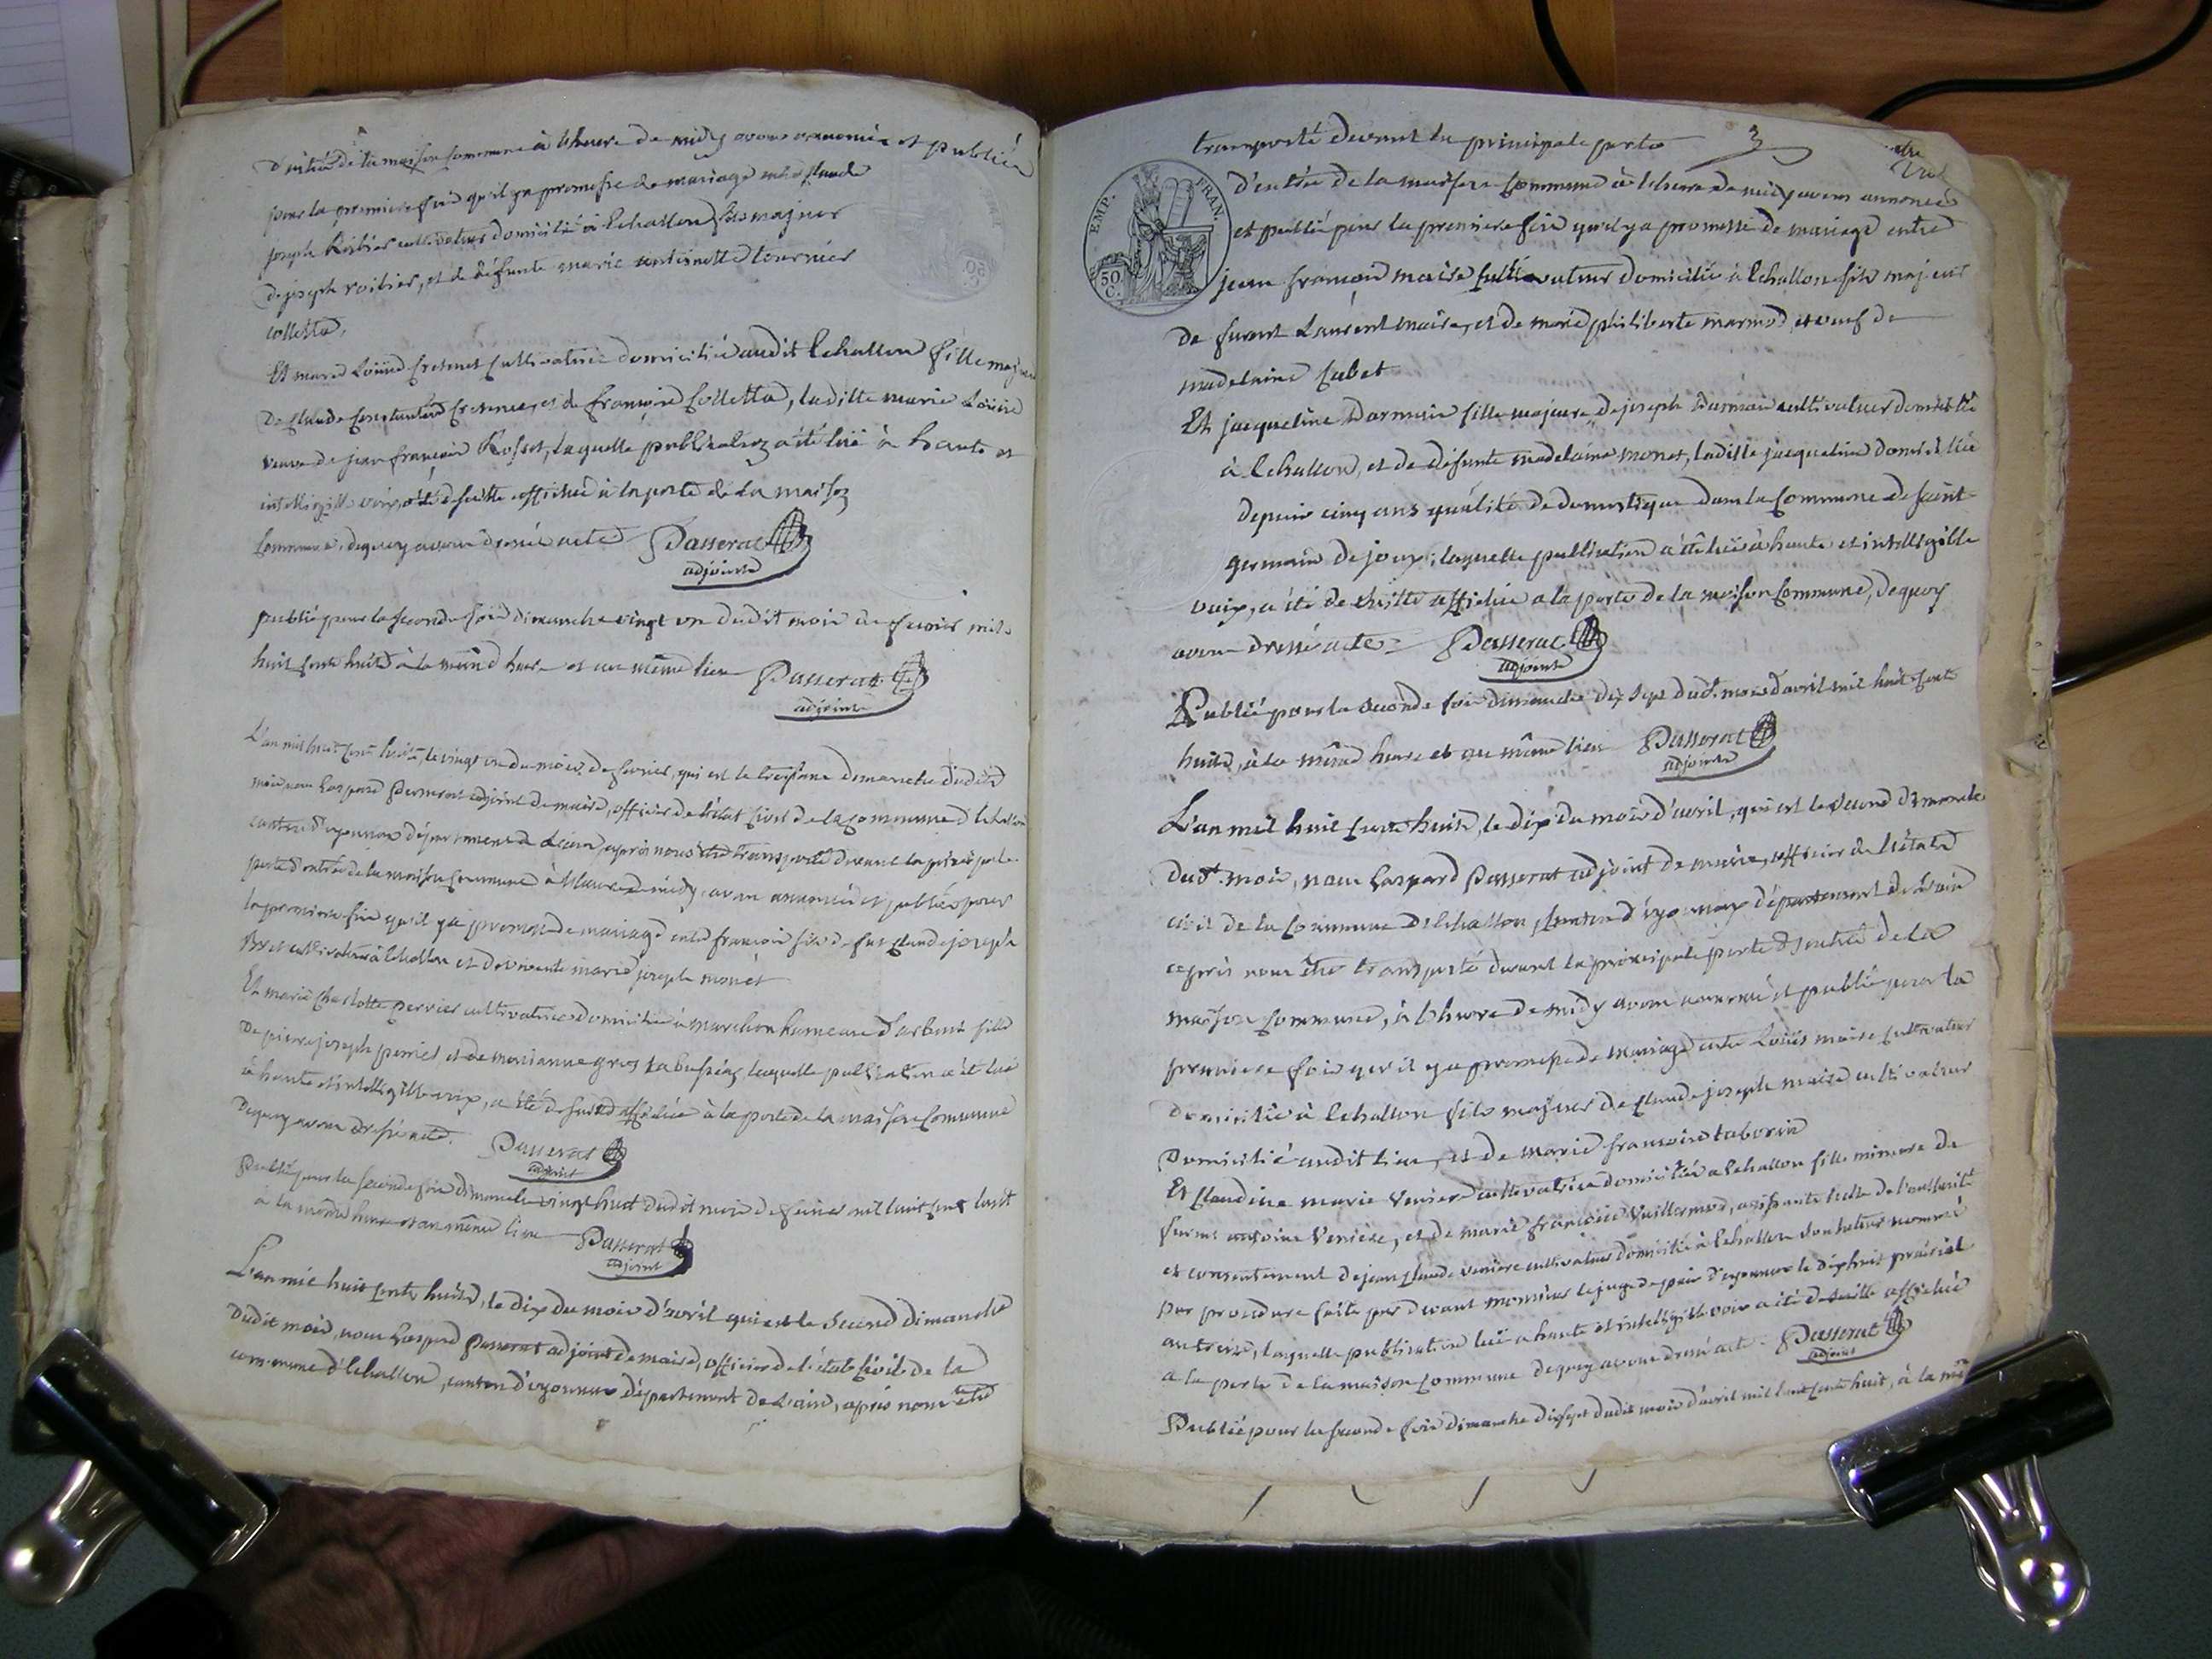 d'entrée de la maison commune à l'heure de midy avons annoncé et publiée
pour la premiere fois qu'il y a promesse de mariage entre Claude
joseph Roibier cultivateur domicilié à Echallon fils majeur
de joseph roibier, et de défunte marie antoinette tournier
colletta,
Et marie Louise cultivatrice domiciliée audit Echallon fille majeure
de Claude Constantin et de françoise Colletta, laditte marie Louise
veuve de jean françois Rosset, laquelle publication a été luë à haute et
intelligible voix, a été de suitte affichée à la porte de la maison
commune, de quoy avons dressé acte Passerat
adjoint
publié pour la seconde fois dimanche vingt un dudit mois de fevrier mil
huit cent huit à la même heure et au même lieu Passerat
adjoint
L'an mil huit cent huit, le vingt un du mois de fevrier, qui est le troisieme dimanche dudit
mois, nous Gaspard Passerat adjoint de maire, officier de l'état civil de la commune d'Echallon
canton d'oyonnax département de l'ain, après nous être transporté devant la principale
porte d'entrée de la maison commune à l'heure de midy, avons annoncé et publiée pour
la premiere fois qu'il y a promesse de mariage entre françois fils de feu Claude joseph
cultivateur à Echallon et de vivante marie joseph monet
Et marie Charlotte perrier cultivatrice domiciliée à marchon hameau d'arbent fille
de pierre joseph perrier, et de marianne gros laquelle publication a été luë
à haute et intelligible voix, a été de suitte affichée à la porte de la maison commune
de quoy avons dressé acte. Passerat
adjoint
Publié pour la seconde fois dimanche vingt huit dudit mois de fevrier mil huit cent huit
à la même heure et au même lieu Passerat
adjoint
L'an mil huit cent huit, le dix du mois d'avril qui est le second dimanche
dudit mois, nous Gaspard Passerat adjoint de maire, officier de l'état civil de la
commune d'Echallon, canton d'oyonnax département de l'ain, après nous être
transporté devant la principale porte 3
d'entrée de la maison commune à l'heure de midy avons annoncé
EMP. FRAN.
50 C.
et publié pour la premiere fois qu'il y a promesse de mariage entre
jean françois maire cultivateur domicilié à Echallon fils majeur
de furent Laurent maire, et de marie philiberte marmod, et veuf de
madelaine Cubet
Et jacqueline Darmais fille majeure de joseph Darmais cultivateur domicilié
à Echallon, et de défunte madelaine monet, laditte jacqueline domiciliée
depuis cinq ans qualité de domestique dans la commune de saint
germain de joux; laquelle publication a été luë à haute et intelligible
voix, a été de suitte affichée a la porte de la maison commune, de quoy
avons dressé acte Passerat
adjoint
Publié pour la seconde fois dimanche dix sept dud.t mois d'avril mil huit cent
huit, à la même heure et au même lieu Passerat
adjoint
L'an mil huit cent huit, le dix du mois d'avril, qui est le second dimanche
dud.t mois, nous Gaspard Passerat adjoint de maire, officier de l'état
civil de la commune d'Echallon, canton d'oyonnax département de l'ain
après nous être transporté devant la principale porte d'entrée de la
maison commune, à l'heure de midy avons annoncé et publié pour la
premiere fois qu'il y a promesse de mariage entre Louis maire cultivateur
domicilié à Echallon fils majeur de Claude joseph maire cultivateur
domicilié audit lieu, et de marie françoise taborin
Et Claudine marie Veniere cultivatrice domiciliée a Echallon fille mineure de
furent antoine Veniere, et de marie françoise Vuillermod, de l'authorité
et consentement de jean Claude Veniere cultivateur domicilié à Echallon son tuteur nommé
par procedure faite par devant monsieur le juge de paix d'oyonnax le dixhuit prairial
an treize, laquelle publication luë a haute et intelligible voix a été de suitte affichée
a la porte de la maison commune de quoy avons dressé acte. Passerat
adjoint
Publié pour la seconde fois dimanche dixsept dudit mois d'avril mil huit cent huit, à la mê